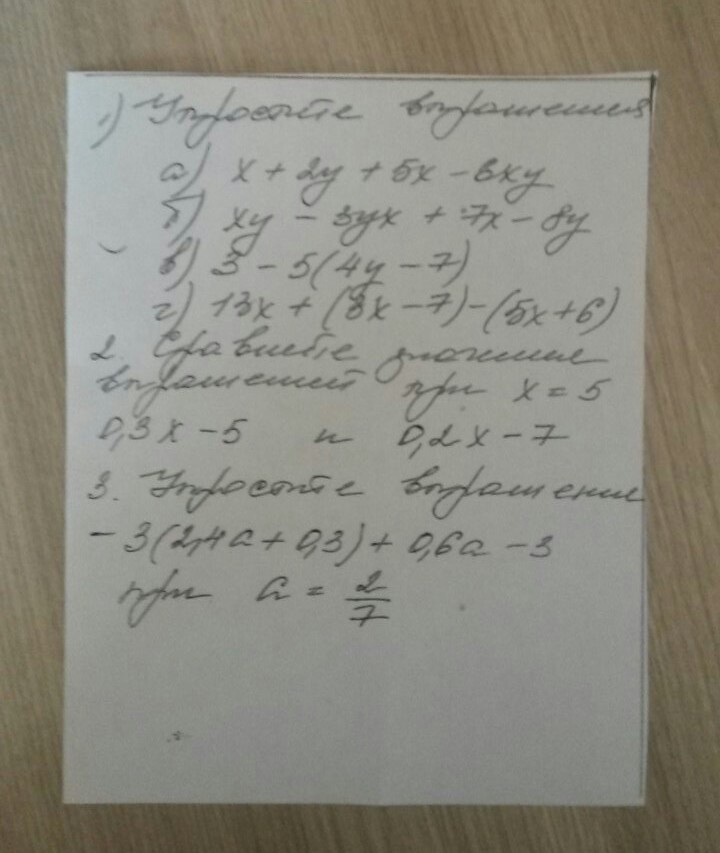 1) Упростите выражения
а) x + 2y + 5x - 6xy
б) xy - 3yx + 7x - 8y
в) 3 - 5(4y - 7)
г) 13x + (8x - 7) - (5x + 6)
2. Сравните значение
выражений при x = 5
0,3x - 5 и 0,2x - 7
3. Упростите выражение
- 3(2,4a + 0,3) + 0,6a - 3
при a = 2/7